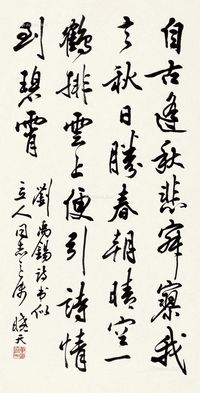 自古逢秋悲寂寥我
言秋日勝春朝晴空一
鶴排雲上便引詩情
到碧霄
劉禹錫詩書似
立人同志之屬 曉天